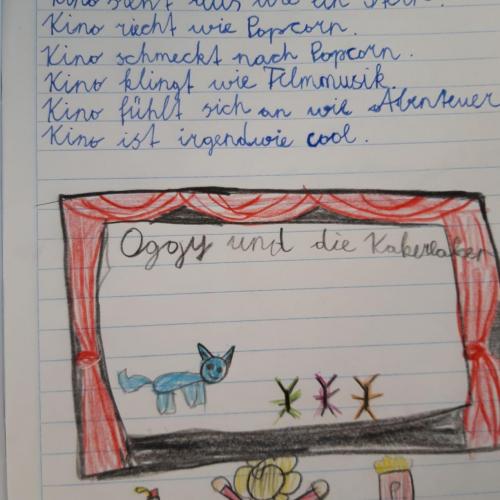 Kino sieht aus wie ein Stern.
Kino riecht wie Popcorn.
Kino schmeckt nach Popcorn.
Kino klingt wie Filmmusik.
Kino fühlt sich an wie Abenteuer
Kino ist irgendwie cool.
Oggy und die Kakerlaken
P